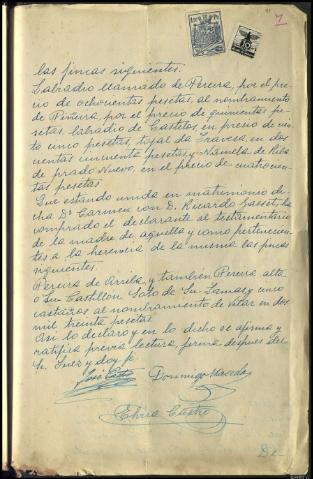 7
las fincas siguientes.
Labradio llamado de Pereira, por el pre-
cio de ochocientas pesetas, al nombramiento
de Piñeira, por el precio de quinientas pe-
setas, labradio de Castelos en precio de
cinco pesetas, tojal da Travesa, en dos
cuentas cincuenta pesetas, y Namela de Riba
de prado Nuevo, en el precio de cuatrocien-
tas pesetas
Que estando unida en matrimonio di-
cha Dª Carmen con D. Ricardo Gasset, ha
comprado el declarante al testamentario
de la madre de aquella y como pertenecien-
tes a la herencia de la misma las fincas
siguientes.
Pereira de Arriba, y tambien Pereira alta
o Castillon Soto de Lamas, y cinco
castaños al nombramiento de Vilar en dos
mil treinta pesetas
Asi lo declaro y en lo dicho se afirma y
ratifica previa lectura, firma despues del
Sr. Juez y doy fe
José Domingo Maceda
Elvira Castro